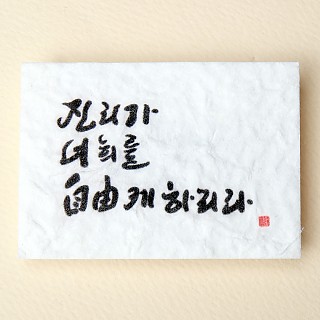 진리가
너희를
自由케 하리라